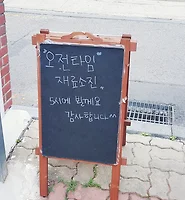 "오전타임"
재료소진
5시에 뵐게요
감사합니다^^